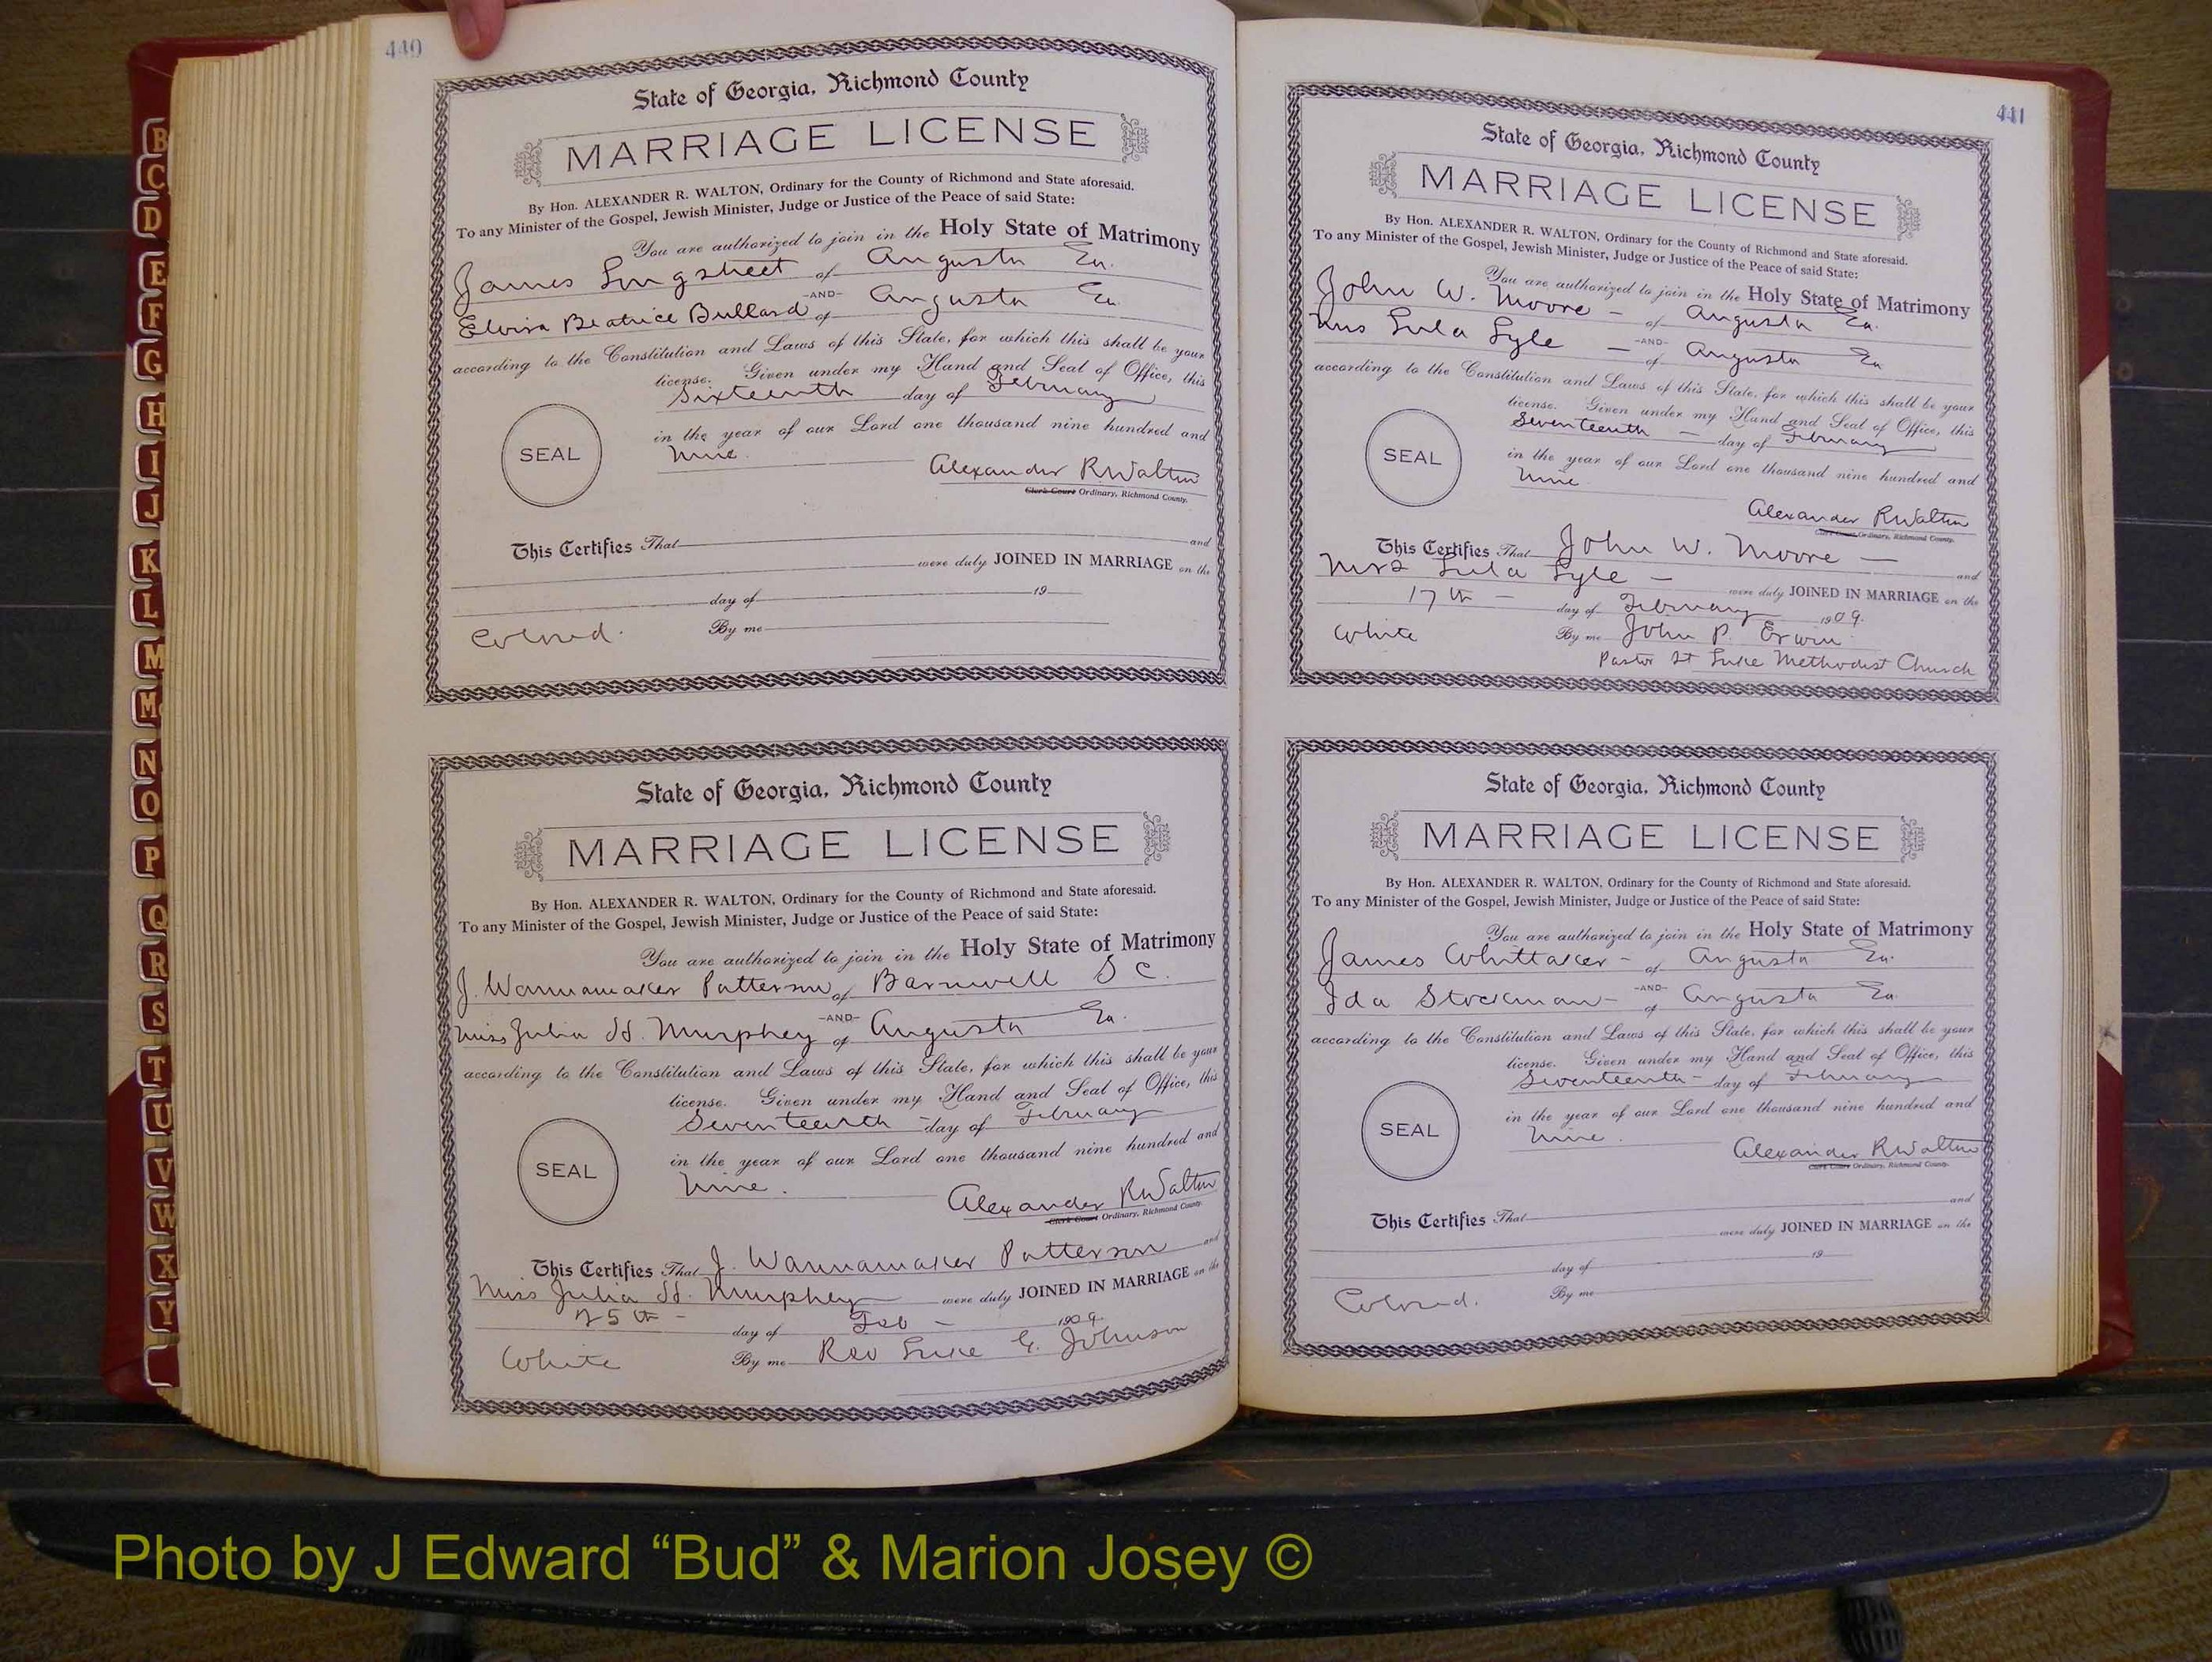 B
C
D
E
F
G
H
I
J
K
L
M
Mc
N
O
P
Q
R
S
T
U
V
W
X
Y
440
State of Georgia, Richmond County
MARRIAGE LICENSE
By Hon. ALEXANDER R. WALTON, Ordinary for the County of Richmond and State aforesaid.
To any Minister of the Gospel, Jewish Minister, Judge or Justice of the Peace of said State:
You are authorized to join in the Holy State of Matrimony
James Longstreet of Augusta Ga.
-AND-
Elvira Beatrice Bullard of Augusta Ga.
according to the Constitution and Laws of this State, for which this shall be your
license. Given under my Hand and Seal of Office, this
Sixteenth day of February
in the year of our Lord one thousand nine hundred and
nine.
SEAL
Alexander R Walton
Clerk Court Ordinary, Richmond County.
This Certifies That and
were duly JOINED IN MARRIAGE on the
day of 19
Colored. By me
State of Georgia, Richmond County
MARRIAGE LICENSE
By Hon. ALEXANDER R. WALTON, Ordinary for the County of Richmond and State aforesaid.
To any Minister of the Gospel, Jewish Minister, Judge or Justice of the Peace of said State:
You are authorized to join in the Holy State of Matrimony
J. Wannamaker Patterson of Barnwell S C.
-AND-
Miss Julia H. Murphey of Augusta Ga.
according to the Constitution and Laws of this State, for which this shall be your
license. Given under my Hand and Seal of Office, this
Seventeenth day of February
in the year of our Lord one thousand nine hundred and
nine.
SEAL
Alexander R Walton
Clerk Court Ordinary, Richmond County.
This Certifies That J. Wannamaker Patterson and
Miss Julia H. Murphey were duly JOINED IN MARRIAGE on the
25th - day of Feb - 1909.
White By me Rev Luke G. Johnson
441
State of Georgia, Richmond County
MARRIAGE LICENSE
By Hon. ALEXANDER R. WALTON, Ordinary for the County of Richmond and State aforesaid.
To any Minister of the Gospel, Jewish Minister, Judge or Justice of the Peace of said State:
You are authorized to join in the Holy State of Matrimony
John W. Moore - of Augusta Ga.
-AND-
Mrs Lula Lyle - of Augusta Ga
according to the Constitution and Laws of this State, for which this shall be your
license. Given under my Hand and Seal of Office, this
Seventeenth - day of February
in the year of our Lord one thousand nine hundred and
nine
SEAL
Alexander R Walton
Clerk Court Ordinary, Richmond County.
This Certifies That John W. Moore - and
Mrs Lula Lyle - were duly JOINED IN MARRIAGE on the
17th - day of February 1909.
White By me John P. Erwin
Pastor St Luke Methodist Church
State of Georgia, Richmond County
MARRIAGE LICENSE
By Hon. ALEXANDER R. WALTON, Ordinary for the County of Richmond and State aforesaid.
To any Minister of the Gospel, Jewish Minister, Judge or Justice of the Peace of said State:
You are authorized to join in the Holy State of Matrimony
James Whittaker - of Augusta Ga.
-AND-
Ida Stockman - of Augusta Ga.
according to the Constitution and Laws of this State, for which this shall be your
license. Given under my Hand and Seal of Office, this
Seventeenth - day of February
in the year of our Lord one thousand nine hundred and
nine.
SEAL
Alexander R Walton
Clerk Court Ordinary, Richmond County.
This Certifies That and
were duly JOINED IN MARRIAGE on the
day of 19
Colored. By me
Photo by J Edward “Bud” & Marion Josey ©